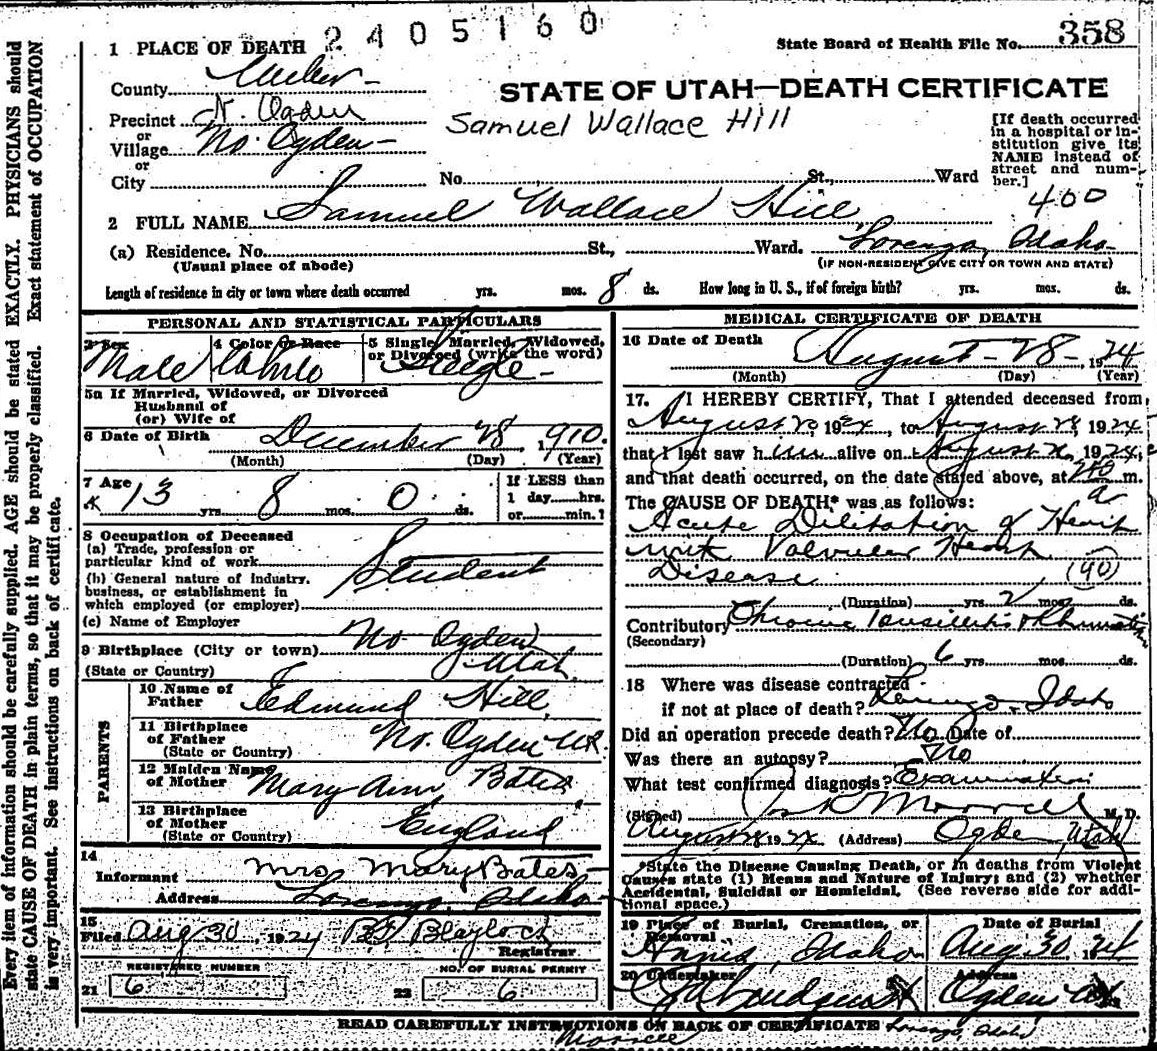 2405160
State Board of Health File No. 358
1 PLACE OF DEATH
County Weber
STATE OF UTAH—DEATH CERTIFICATE
Precinct N. Ogden
Samuel Wallace Hill
or
Village No. Ogden
or
City No. St., Ward
[If death occurred
in a hospital or in-
stitution give its
NAME instead of
street and num-
ber.]
400
2 FULL NAME Samuel Wallace Hill
(a) Residence. No. St., Ward. Lorenzo, Idaho
(Usual place of abode)
(IF NON-RESIDENT GIVE CITY OR TOWN AND STATE)
Length of residence in city or town where death occurred yrs. mos. 8 ds. How long in U. S., if of foreign birth? yrs. mos. ds.
PERSONAL AND STATISTICAL PARTICULARS
3 Sex
Male
4 Color or Race
White
5 Single, Married, Widowed,
or Divorced (write the word)
Single
5a If Married, Widowed, or Divorced
Husband of
(or) Wife of
6 Date of Birth December 28, 1910.
(Month) (Day) (Year)
7 Age
13 yrs. 8 mos. 0 ds.
If LESS than
1 day......hrs.
or......min.?
8 Occupation of Deceased
(a) Trade, profession or
particular kind of work Student
(b) General nature of industry,
business, or establishment in
which employed (or employer)
(c) Name of Employer
9 Birthplace (City or town) No Ogden
(State or Country) Utah
PARENTS
10 Name of
Father Edmund Hill
11 Birthplace
of Father No. Ogden Ut.
(State or Country)
12 Maiden Name
of Mother Mary Ann Bates
13 Birthplace
of Mother England
(State or Country)
14
Informant Mrs Mary Bates
Address Lorenzo, Idaho
15
Filed Aug 30, 1924 Blaylock
Registrar
REGISTERED NUMBER
21 6
NO. OF BURIAL PERMIT
22 6
MEDICAL CERTIFICATE OF DEATH
16 Date of Death August 28 1924
(Month) (Day) (Year)
17. I HEREBY CERTIFY, That I attended deceased from
August 1924, to August 28, 1924
that I last saw him alive on August 1924,
and that death occurred, on the date stated above, at a m.
The CAUSE OF DEATH* was as follows:
Acute Dilitation of Heart
with Valvular Heart
Disease (90)
(Duration) yrs. 2 mos. ds.
Contributory Chronic tonsilitis & Rhumatism
(Secondary)
(Duration) 6 yrs. mos. ds.
18 Where was disease contracted
if not at place of death? Lorenzo, Idaho
Did an operation precede death? No Date of
Was there an autopsy? No
What test confirmed diagnosis? Examination
(Signed) Morrell M. D.
August 28 1924 (Address) Ogden, Utah
*State the Disease Causing Death, or in deaths from Violent
Causes state (1) Means and Nature of Injury; and (2) whether
Accidental, Suicidal or Homicidal. (See reverse side for addi-
tional space.)
19 Place of Burial, Cremation, or
Removal
Annis, Idaho
Date of Burial
Aug. 30, 24
20 Undertaker
Address
Ogden Utah
READ CAREFULLY INSTRUCTIONS ON BACK OF CERTIFICATE Lorenzo, Idaho
Morrell
Every item of information should be carefully supplied. AGE should be stated EXACTLY. PHYSICIANS should
state CAUSE OF DEATH in plain terms, so that it may be properly classified. Exact statement of OCCUPATION
is very important. See instructions on back of certificate.